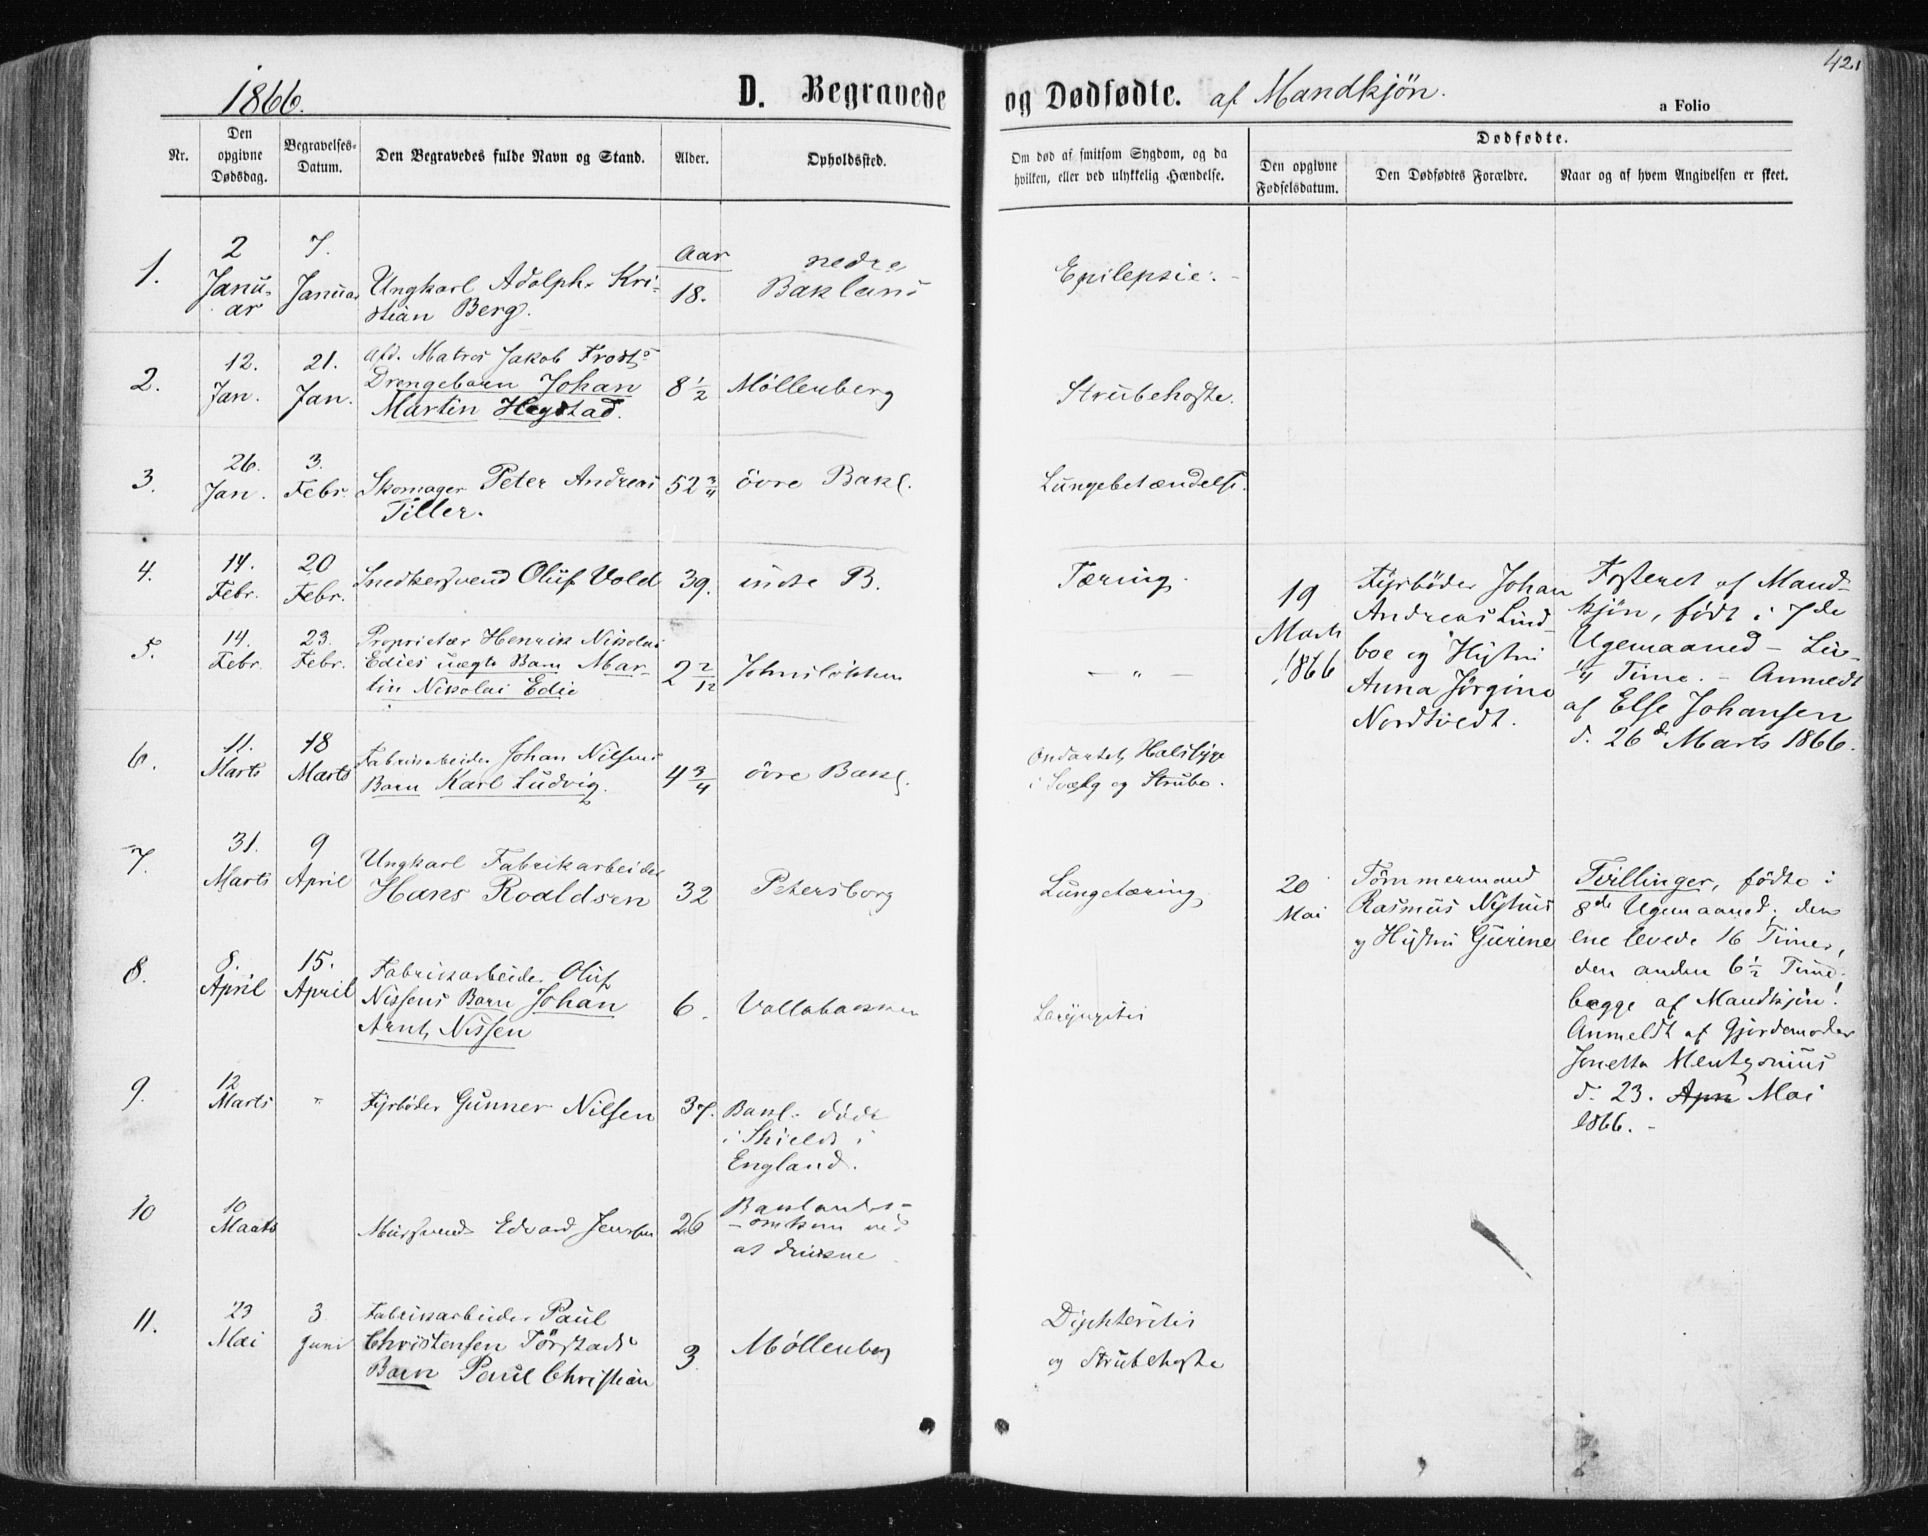 421
1866.
D. Begravede og Dødfødte. af Mandkjön.
a Folio
Nr.
Den opgivne Dødsdag.
Begravelses-Datum.
Den Begravedes fulde Navn og Stand.
Alder.
Opholdssted.
Om død af smitsom Sygdom, og da hvilken, eller ved ulykkelig Hændelse.
Dødfødte.
Den opgivne Fødselsdatum.
Den Dødfødtes Forældre.
Naar og af hvem Angivelsen er skeet.
1.
2 Janu-
ar
7. Januar
Ungkarl Adolph Kri-
stian Berg.
Aar
18.
nedre
Bakland
Epilepsie. -
2.
12.
Jan.
21.
Jan.
Afd. Matros Jakob Frosts
Drengebarn Johan
Martin Hegstad.
8 1/2
Möllenberg
Strubehoste.
3.
26.
Jan.
3.
Febr.
Skomager Peter Andreas
Tiller.
52 3/4
övre Bakl.
Lungebetændelse.
4.
14.
Febr.
20
Febr.
Snedkersvend Oluf Vold
39.
B.
Tæring.
5.
14.
Febr.
23.
Febr.
Proprietær Henrik Nikolai
Edies uægte Barn Mar-
tin Nikolai Edie
2 2/12
- " -
6.
11.
Marts
18
Marts
Fabrikarbeider Johan Nilsens
Barn Karl Ludvig.
4 3/4
övre Bakl.
Ondartet Halssyge
i Svælg og Strube.
7.
31.
Marts
9
April
Ungkarl Fabrikarbeider
Hans Roaldsen
32
Petersborg
Lungetæring
8.
8.
April
15.
April
Fabrikarbeider Oluf
Nissens Barn Johan
Arnt Nissen
6.
Vollabakken
Laryngitis
9.
12
Marts
"
Fyrböder Gunner Nilsen
37.
Bakl. döde
i Shields i
England.
10
10
Marts
Mursvend Edvard Jensen
26
Baklandet -
- omkom ved
at drukne
11.
23
Mai
3
Juni
Fabrikarbeider Paul
Christensen Törstads
Barn Paul Christian
3.
Möllenberg
Diphteritis
og Strubehoste
19
Marts
1866
Fyrböder Johan
Andreas Lind-
boe og Hustru
Anna Jörgine
Nordtvedt.
Fosteret af Mand-
kjön, födt i 7de
Ugemaaned - Lev.
1/4 Time. - Anmeldt
af Else Johansen
d. 26de Marts 1866.
20
Mai
Tömmermand
Rasmus Nyhus
og Hustru Gurine
Tvillinger, födte i
8de Ugemaaned, den
ene levede 16 Timer,
den anden 6 1/2 Time.
begge af Mandkjön!
Anmeldt af Gjordemoder
Jonetta
d. 23. Apri Mai
1866. -